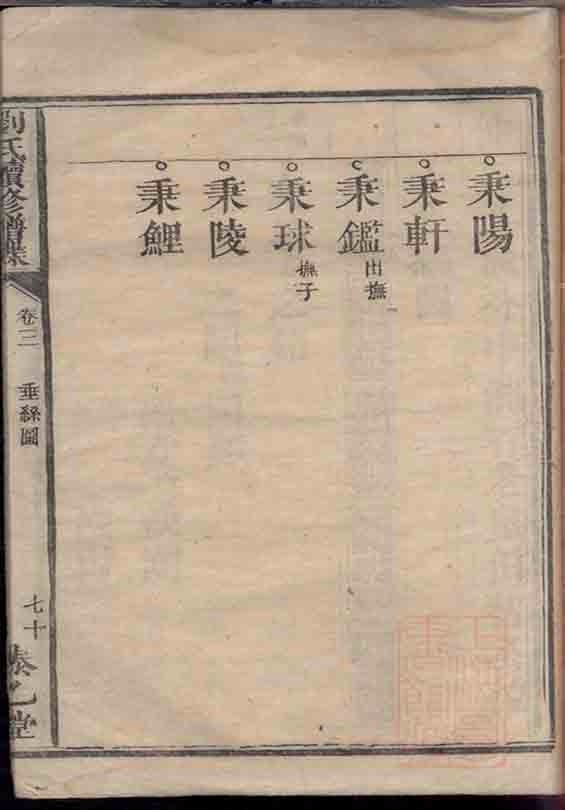 秉陽
秉軒
秉鑑
出撫
秉球
撫子
秉陵
秉鯉
劉氏續修譜
卷三
垂絲圖
七十
堂